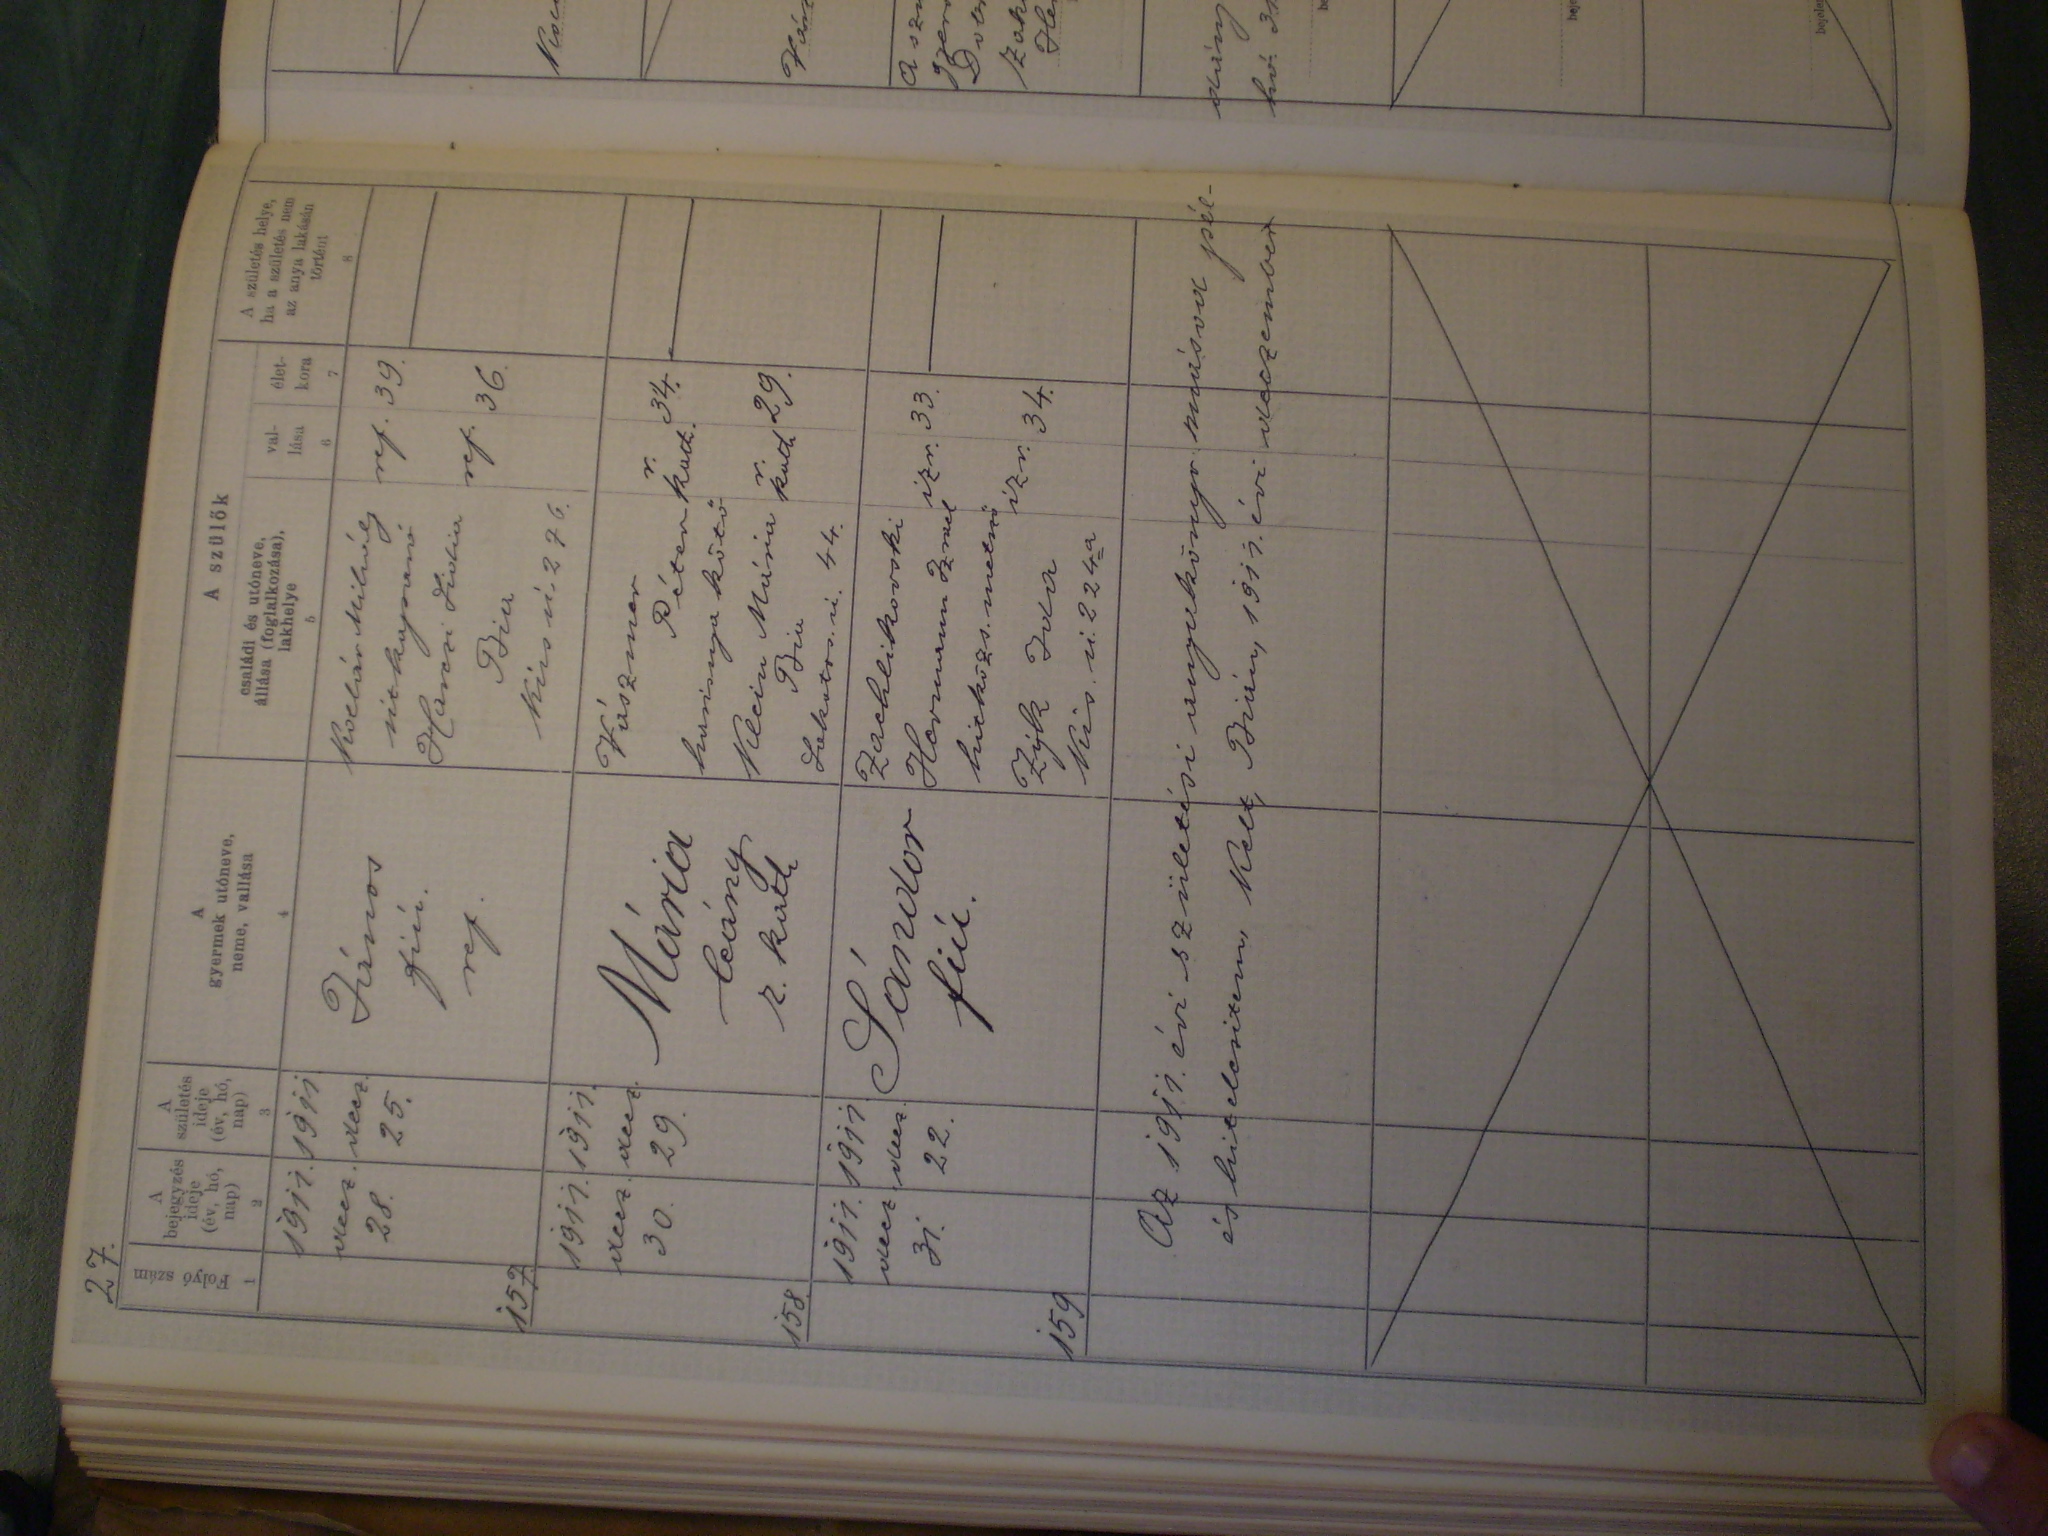 27.
Folyó szám
1
A
bejegyzés
ideje
(év, hó,
nap)
2
A
születés
ideje
(év, hó,
nap)
3
A
gyermek utóneve,
neme, vallása
4
A szülők
családi és utóneve,
állása (foglalkozása),
lakhelye
5
val-
lása
6
élet-
kora
7
A születés helye,
ha a születés nem
az anya lakásán
történt
8
157
1911.
decz.
28.
1911
decz.
25.
János
fiú.
ref.
Kollár Mihály
útkaparó
Hácsi Lidia
Bia
Kis ú 276.
ref. 39.
ref. 36.
158.
1911.
decz.
30.
1911.
decz.
29.
Mária
leány
r. kath
Vászner
Péter
Klein Mária
Bia
Lakatos. ú. 44.
r.
kath. 34.
r.
kath 29.
159
1911.
decz.
31.
1911
decz.
22.
Sándor
fiú.
Zachlikovski
Hermann Izrael
hitközs. metsző
Ida
Kis. ú. 224a
izr. 33.
izr. 34.
Az 1911. évi születési anyakönyv másod pél-
és hitelesitem, Kelt, Bián, 1911. évi deczember
dány
hó 31